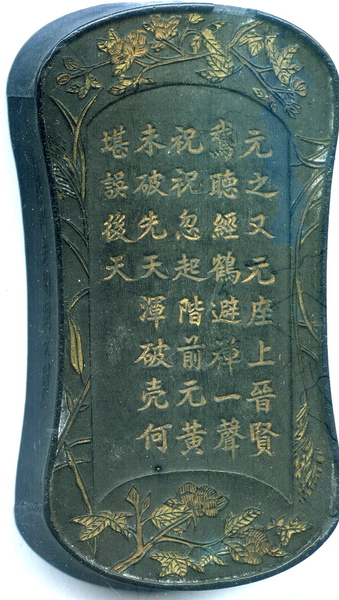 元之又元座上晉賢
鵞聽經鶴避禪一聲
祝祝忽起階前元黃
未破先天渾破壳何
堪誤後天